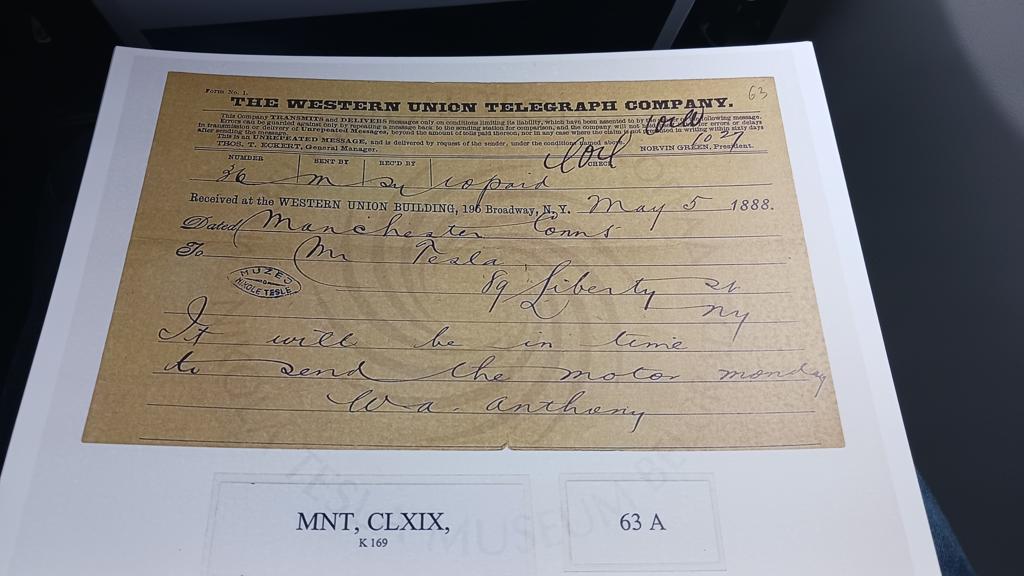 63
Form No. 1.
THE WESTERN UNION TELEGRAPH COMPANY.
This Company TRANSMITS and DELIVERS messages only on conditions limiting its liability, which have been assented to by
Errors can be guarded against only by repeating a message back to the sending station for comparison, and the company will not for errors or delays
in transmission or delivery of Unrepeated Messages, beyond the amount of tolls paid thereon, nor in any case where the claim is not presented in writing within sixty days
after sending the message.
This is an UNREPEATED MESSAGE, and is delivered by request of the sender, under the conditions named above.
THOS. T. ECKERT, General Manager. NORVIN GREEN, President.
NUMBER SENT BY REC'D BY CHECK
36 m 10 paid
Received at the WESTERN UNION BUILDING, 195 Broadway, N.Y. May 5 1888.
Dated Manchester Conns
To Mr Tesla
89 Liberty St
ny
MUZEJ
NIKOLE TESLE
It will be in time
to send the motor monday
Wa. Anthony
MNT, CLXIX, 63 A
K 169
TESLA MUSEUM BE